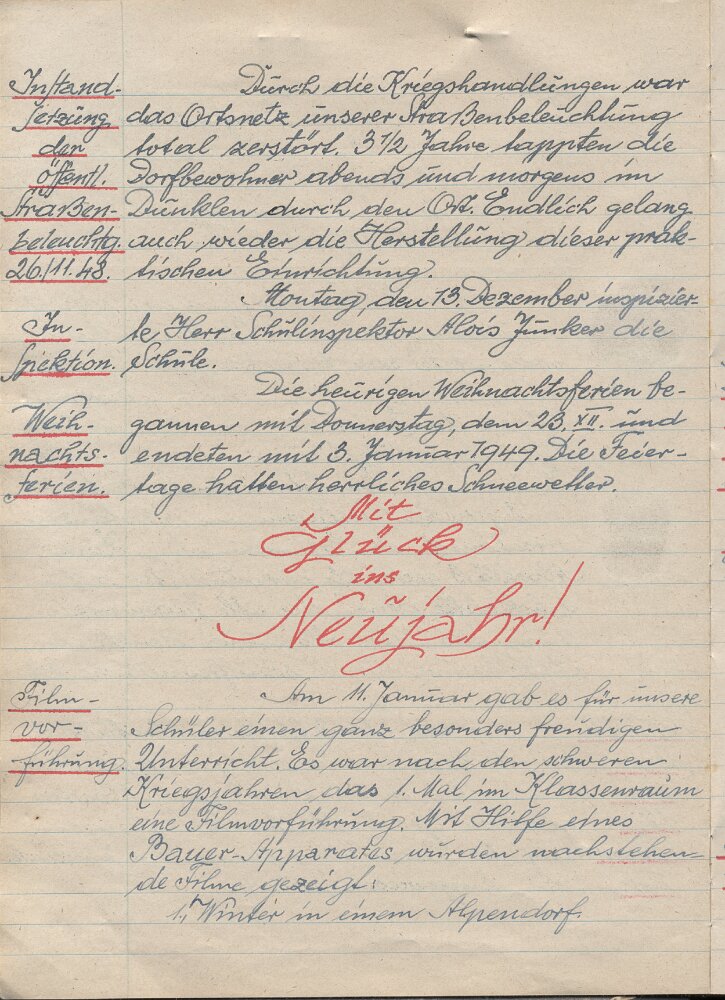 Instand-
setzung
der
öffentl.
Straßen-
beleuchtg.
26./11.48.
Durch die Kriegshandlungen war
das Ortsnetz unserer Straßenbeleuchtung
total zerstört. 3 1/2 Jahre tappten die
Dorfbewohner abends und morgens im
Dunklen durch den Ort. Endlich gelang
auch wieder die Herstellung dieser prak-
tischen Einrichtung.
In-
spektion.
Montag, den 13. Dezember inspizier-
te Herr Schulinspektor Alois Junker die
Schule.
Weih-
nachts-
ferien.
Die heurigen Weihnachtsferien be-
gannen mit Donnerstag, dem 23. XII. und
endeten mit 3. Januar 1949. Die Feier-
tage hatten herrliches Schneewetter.
Mit
Glück
ins
Neujahr!
Film-
vor-
führung.
Am 11. Januar gab es für unsere
Schüler einen ganz besonders freudigen
Unterricht. Es war nach den schweren
Kriegsjahren das 1. Mal im Klassenraum
eine Filmvorführung. Mit Hilfe eines
Bauer-Apparates wurden nachstehen-
de Filme gezeigt:
1., Winter in einem Alpendorf.